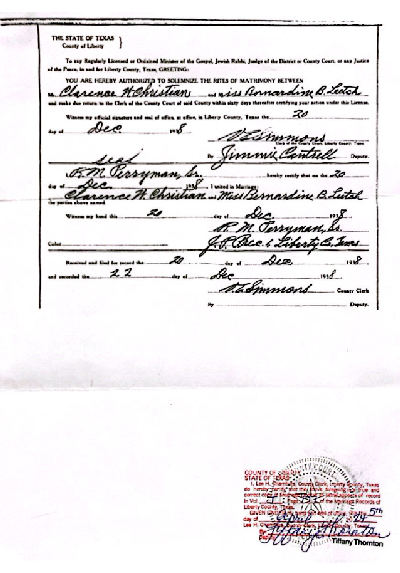 THE STATE OF TEXAS }
County of Liberty
To any Regularly Licensed or Ordained Minister of the Gospel, Jewish Rabbi, Judge of the District or County Court, or any Justice
of the Peace, in and for Liberty County, Texas, GREETING:
YOU ARE HEREBY AUTHORIZED TO SOLEMNIZE THE RITES OF MATRIMONY BETWEEN
Mr. Clarence H. Christian and Miss Bernardine B. Leitch
and make due return to the Clerk of the County Court of said County within sixty days thereafter certifying your action under this License.
Witness my official signature and seal of office, at office, in Liberty County, Texas the 20
day of Dec 1918
Clerk of the County Court, Liberty County, Texas
By Jimmie Cantrell Deputy.
seal
R. M. Perryman, Sr. hereby certify that on the 20
day of Dec 1918 I united in Marriage
Clarence H. Christian and Miss Bernardine B. Leitch
the parties above named
Witness my hand this 20 day of Dec 1918
R. M. Perryman, Sr.
J.P. Prec 6 Liberty Co, Texas
Received and filed for record the 20 day of Dec 1918
and recorded the 22 day of Dec 1918
County Clerk
By Deputy.
COUNTY OF LIBERTY
STATE OF TEXAS
I, Lee H. County Clerk, Liberty County, Texas
of the Marriage Records of
Liberty County, Texas
5th
day of April
Tiffany Thornton